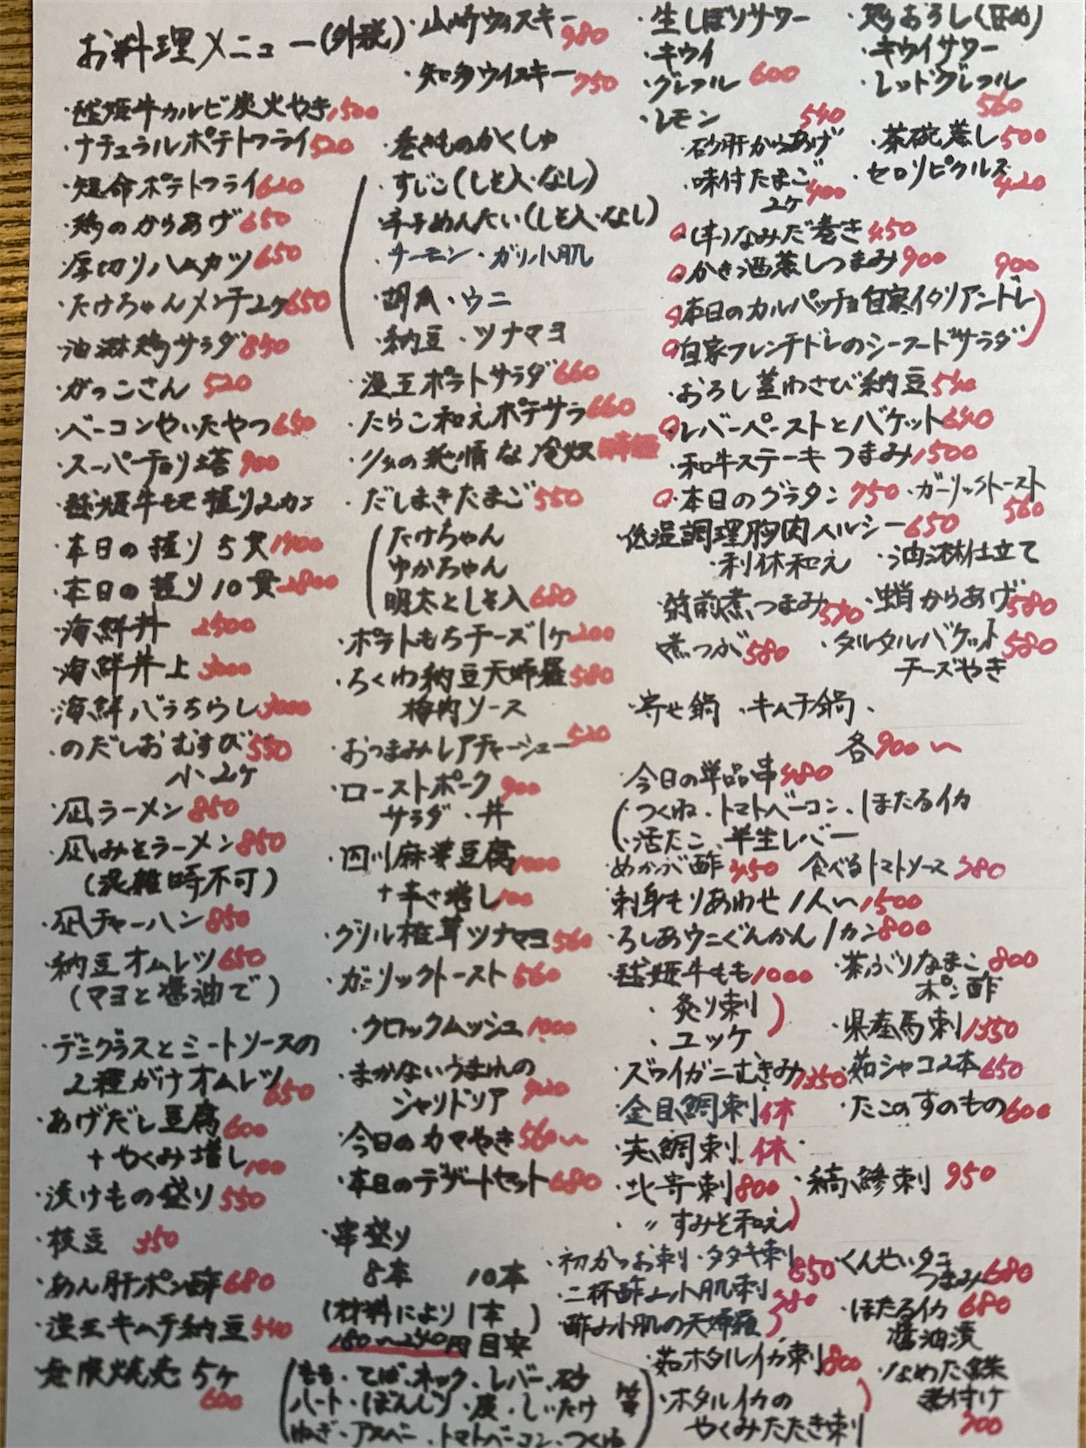 お料理メニュー(外税)
・山崎ウィスキー 980
・知多ウイスキー 750
・生しぼりサワー
・キウイ
・グレフル 600
・レモン 540
・キウイサワー
・レッドグレフル 560
・越姫牛カルビ炭火やき 1,500
・ナチュラルポテトフライ 520
・短命ポテトフライ 620
・鶏のからあげ 650
・厚切りハムカツ 650
・たけちゃんメンチ2ヶ 650
・油淋鶏サラダ 850
・がっこさん 520
・ベーコンやいたやつ 650
・スーパー 900
・本日の握り5貫 1400
・本日の握り10貫 2800
・海鮮丼 2500
・海鮮丼上 3000
・海鮮バラちらし 3000
・のだしおむすび 550
小2ヶ
・凪ラーメン 850
・凪みそラーメン 850
(混雑時不可)
・凪チャーハン 850
・納豆オムレツ 650
(マヨと醤油で)
・デミグラスとミートソースの
2種がけオムレツ 650
・あげだし豆腐 600
+やくみ増し 100
・漬けもの盛り 550
・枝豆 350
・あん肝ポン酢 680
・漬玉キムチ納豆 540
・無限焼売 5ヶ
600
・巻きものかくしゅ
・すじこ(しそ入・なし)
・辛子めんたい(しそ入・なし)
・サーモン・ガリ小肌
・胡瓜・ウニ
・納豆・ツナマヨ
・漬玉ポテトサラダ 660
・たらこ和えポテサラ 660
・だしまきたまご 550
たけちゃん
ゆかちゃん
明太としそ入 680
・ポテトもちチーズ1ヶ 200
・ちくわ納豆天婦羅 580
梅肉ソース
・おつまみレアチャーシュー 520
・ローストポーク 900
サラダ・丼
・四川麻婆豆腐 1000
+辛さ増し 100
・グリル椎茸ツナマヨ 560
・ガーリックトースト 560
・クロックムッシュ 1000
・まかないうまれの
シャリドリア 920
・今日のカマやき 560〜
・本日のデザートセット 680
・串盛り
8本 10本
(材料により1本)
180〜240円目安
もも・てば・ネック・レバー・砂
ハート・ぼんじり・皮・しいたけ 等
ねぎ・アスベー・トマトベーコン・つくね
・砂肝からあげ
・茶碗蒸し 500
・味付たまご 400
2ヶ
・セロリピクルス 420
・(辛)なみだ巻き 450
・かき酒蒸しつまみ 900
900
・本日のカルパッチョ自家イタリアンドレ
・自家フレンチドレのシーフードサラダ
・おろし茎わさび納豆 540
・レバーペーストとバケット 640
・和牛ステーキつまみ 1500
・本日のグラタン 750
・ガーリックトースト 560
・低温調理胸肉ヘルシー 650
・利休和え ・油淋仕立て
・筑前煮つまみ 570
・蛸からあげ 580
・煮つが 580
・タルタルバケット 580
チーズやき
・寄せ鍋 ・キムチ鍋、
各900〜
・今日の単品串 480
つくね・トマトベーコン・ほたるイカ
・活たこ・半生レバー
めかぶ酢 450 食べるトマトソース 380
刺身もりあわせ1人〜 1500
・ろしあウニぐんかん1カン 800
・越姫牛もも 1000
・炙り刺
・ユッケ
・茶ぶりなまこ 800
ポン酢
・県産馬刺 1350
・ズワイガニむきみ 1350
・茹シャコ2本 650
・金目鯛刺 休
・たこのすのもの 600
・真鯛刺 休
・北寄刺 800
・縞鯵刺 950
・〃 すみそ和え
・初かつお刺・タタキ刺 850
・くんせいタコ
つまみ 680
・二杯酢〆小肌刺
・酢〆小肌の天婦羅 380
・ほたるイカ 680
醤油漬
・茹ホタルイカ刺 800
・ホタルイカの
やくみたたき刺
・なめた鰈
煮付け
700